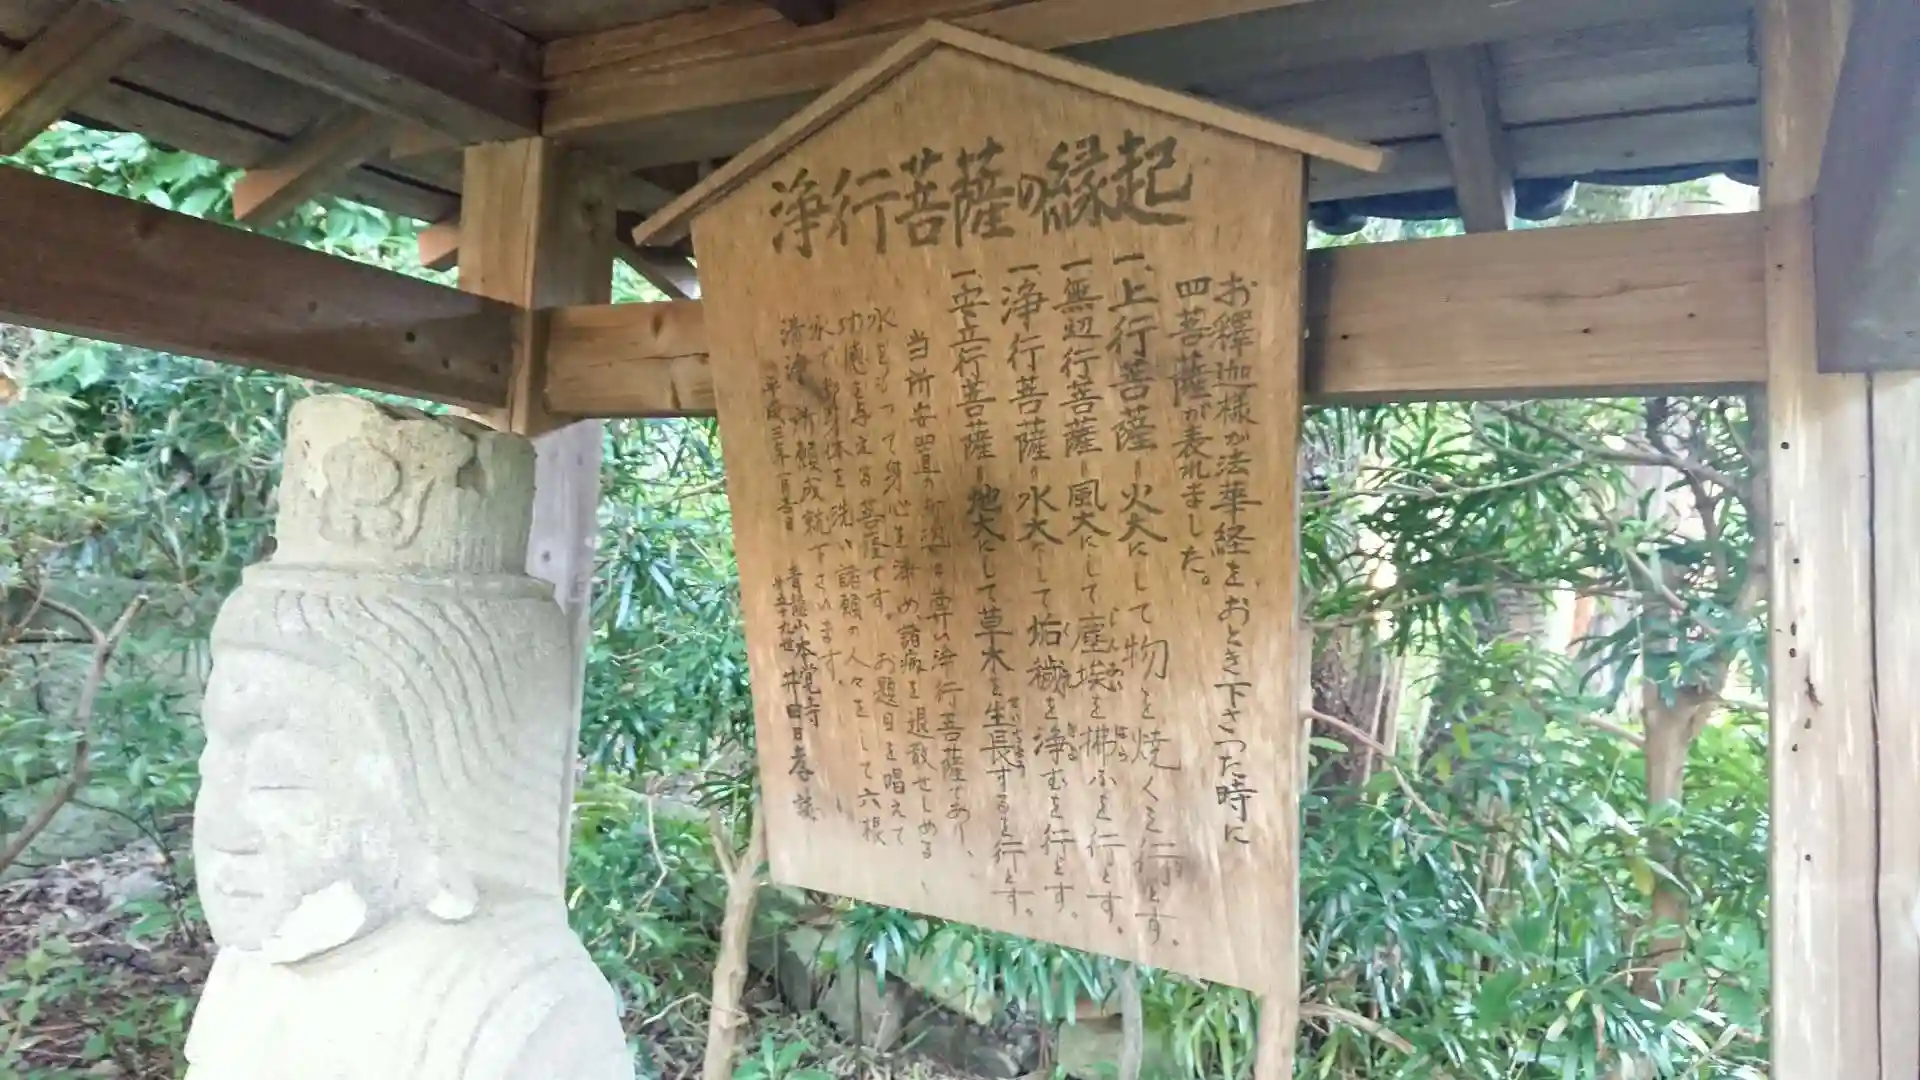 浄行菩薩の縁起
お釋迦様が法華経をおとき下さった時に
四菩薩が表れました。
一、上行菩薩＝火大にして物を焼くを行とす。
一、無辺行菩薩＝風大にして塵埃を拂ふを行とす。
じんあい はら
一、浄行菩薩＝水大にして垢穢を浄むを行とす。
一、安立行菩薩＝地大にして草木を生長するを行とす。
当所安置の御姿は尊い浄行菩薩であり、
水をもって身心を浄め諸病を退散せしめる
功徳を与える菩薩です。お題目を唱えて
水で御身体を洗い諸願の人々をして六根
清浄、所願成就下さいます。
平成三年
青龍山本覚寺
井田日孝 誌